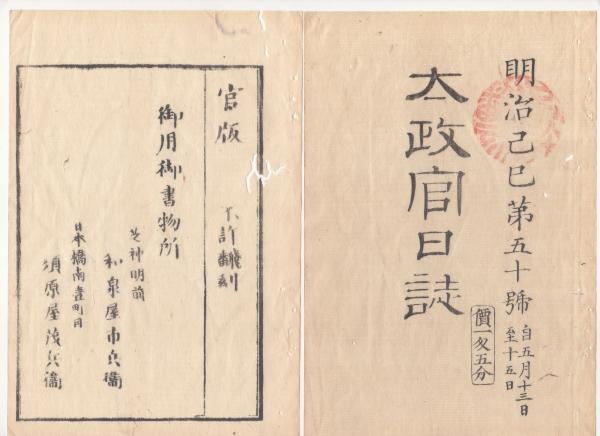 明治己巳第五十號
自五月十三日
至十五日
太政官日誌
價一匁五分
官版
不許飜刻
御用御書物所
芝神明前
和泉屋市兵衞
日本橋南壹町目
須原屋茂兵衞